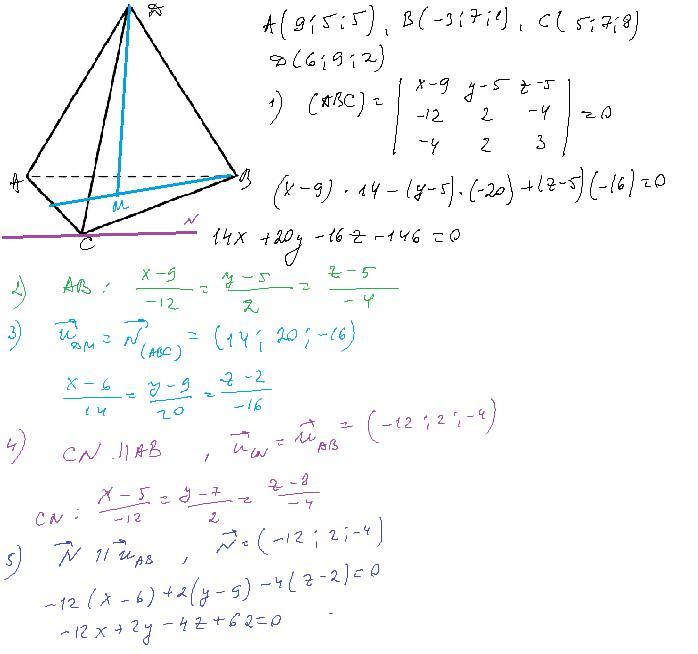 A(9;5;5), B(-3;7;1), C(5;7;8)
D(6;9;2)
1) (ABC) = | x-9 y-5 z-5 |
| -12 2 -4 | = 0
| -4 2 3 |
(x-9)·14-(y-5)·(-20)+(z-5)(-16)=0
14x+20y-16z-146=0
D
A
B
M
N
C
2) AB: (x-9)/(-12) = (y-5)/2 = (z-5)/(-4)
3) u⃗_DM = N⃗_(ABC) = (14; 20; -16)
(x-6)/14 = (y-9)/20 = (z-2)/(-16)
4) CN || AB, u⃗_CN = u⃗_AB = (-12; 2; -4)
CN: (x-5)/(-12) = (y-7)/2 = (z-8)/(-4)
5) N⃗ || u⃗_AB, N⃗ = (-12; 2; -4)
-12(x-6)+2(y-9)-4(z-2)=0
-12x+2y-4z+62=0